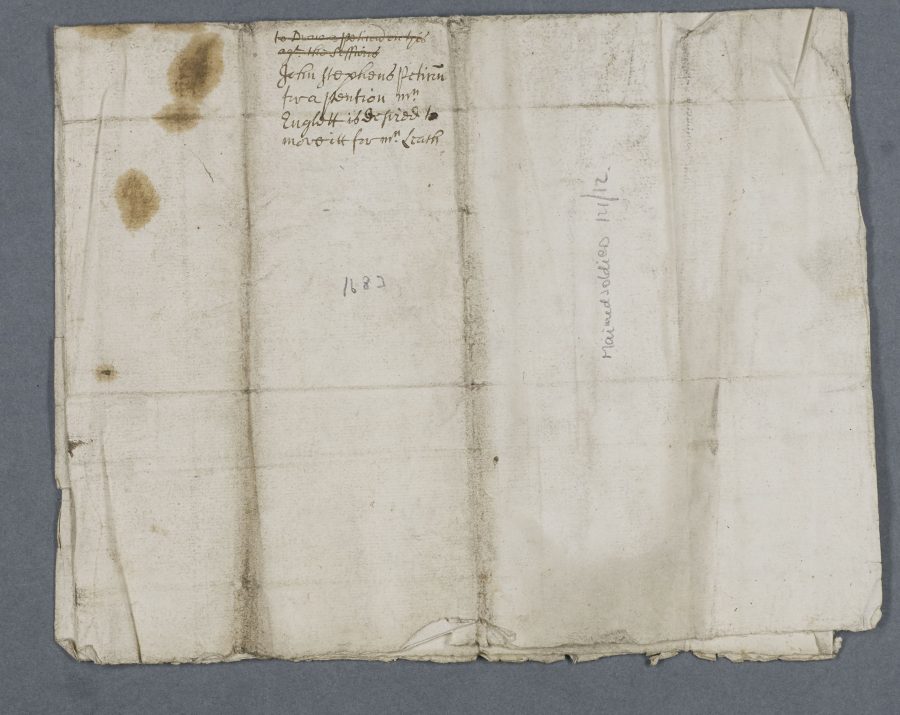 to Drawe a petition on this
agt. the Sessions
John Stephens Petitn
for a pention mr
Euglett is desired to
move itt for mr. Leath
1683
Maimed soldiers 121/12.